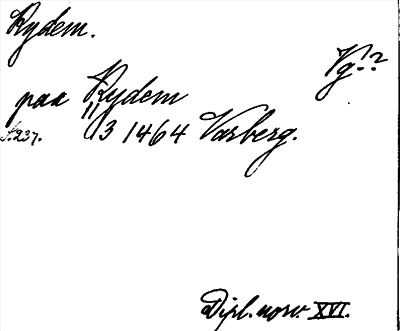 Rydem.
Vg!?
paa Rydem
S. 237. 11/3 1464 Varberg.
Dipl. norv. XVI.